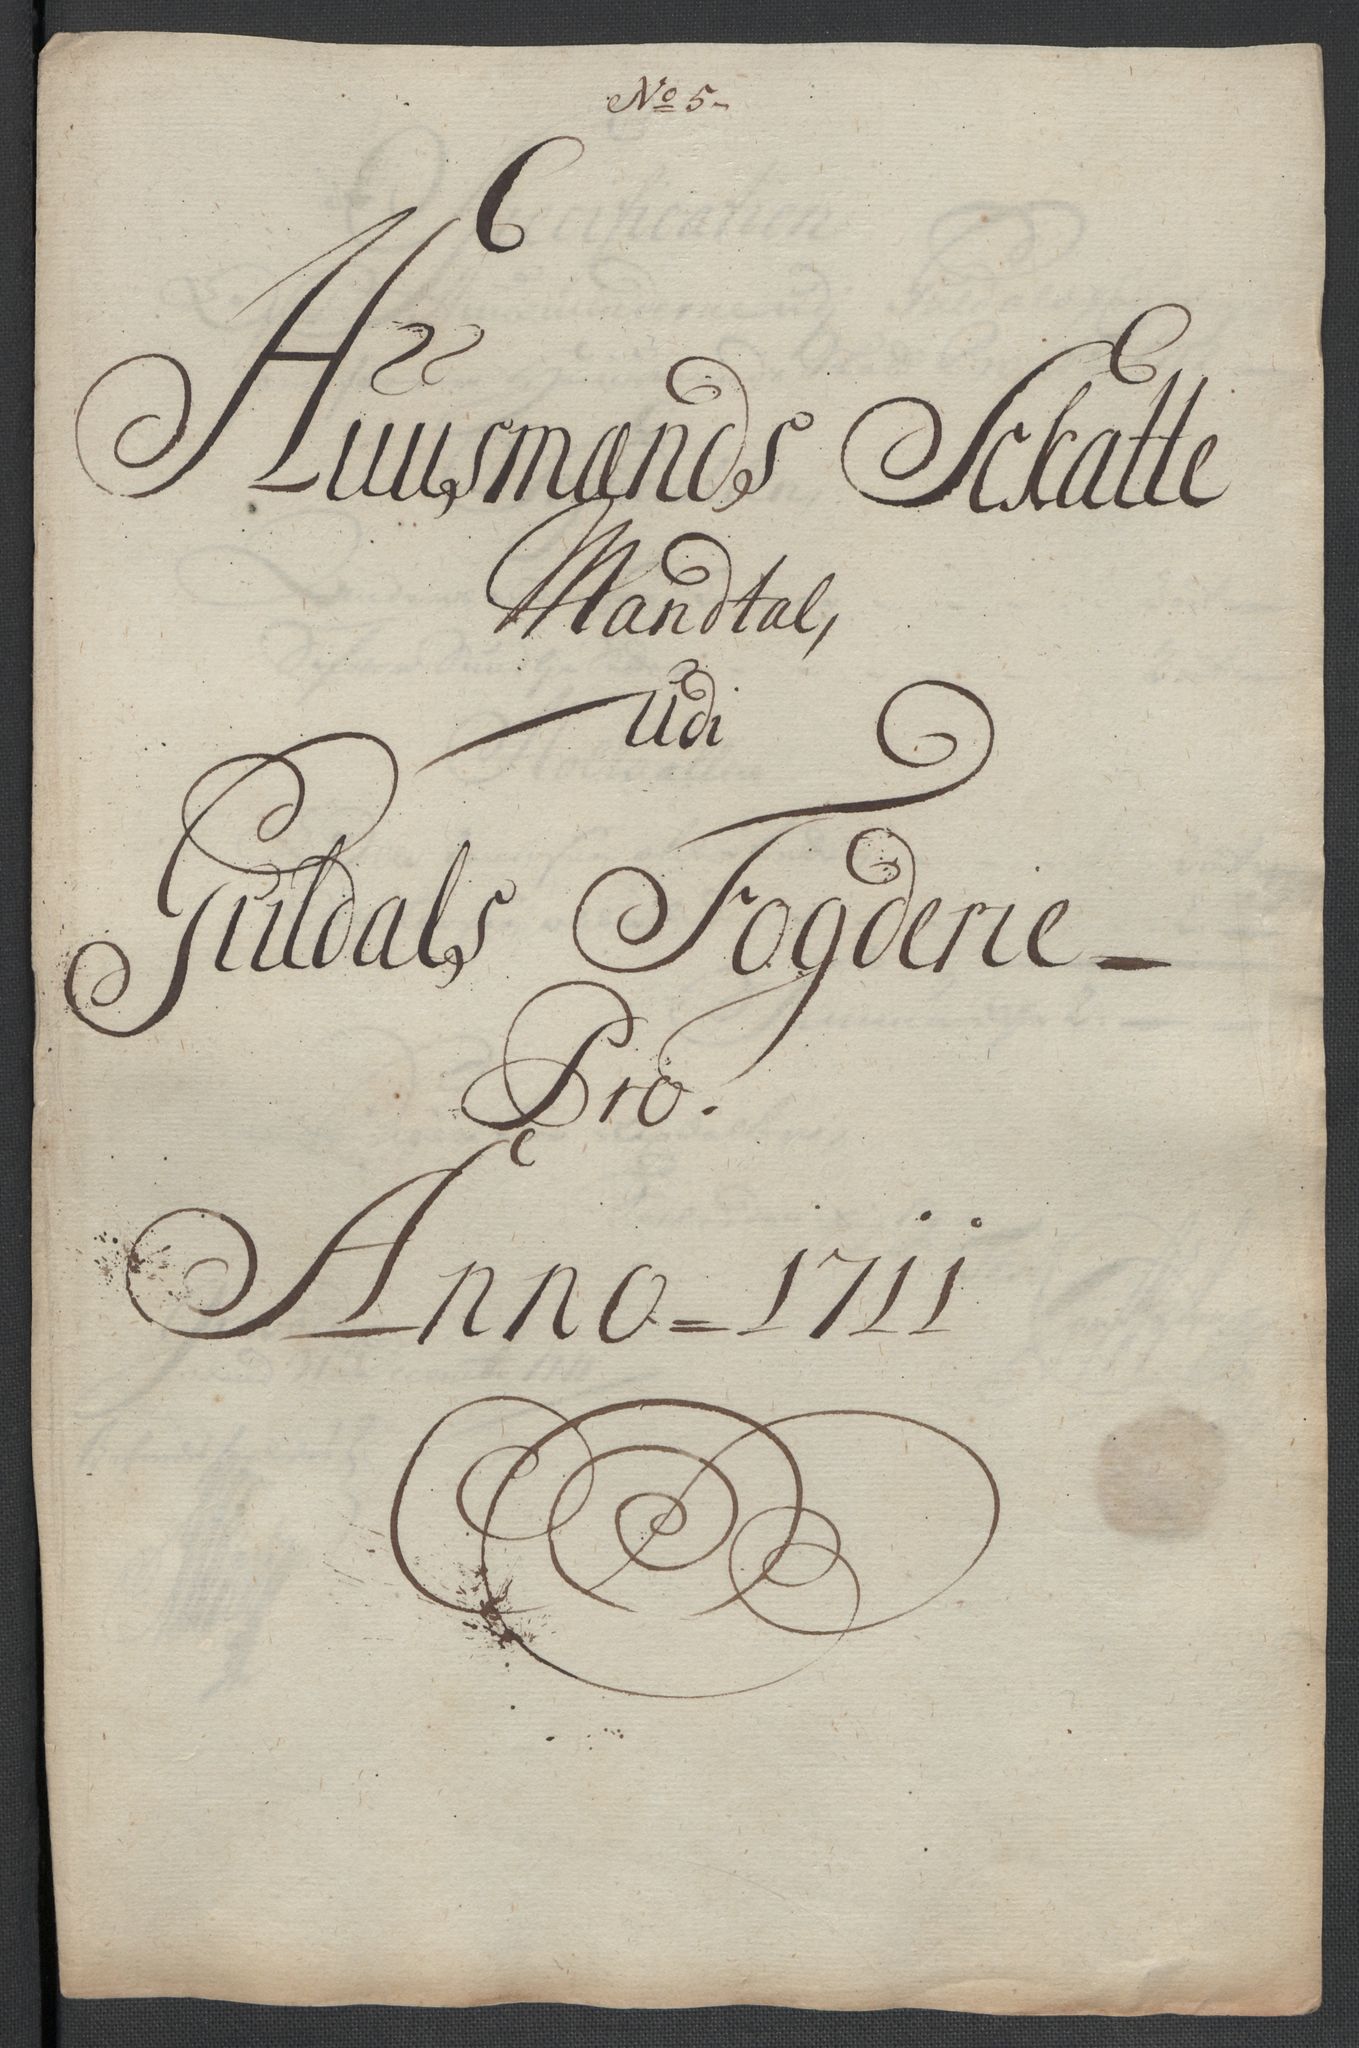 No 5-
Huusmænds Schatte
Mandtal,
Udi
Guldals Fogderie-
Pro.
Anno=1711